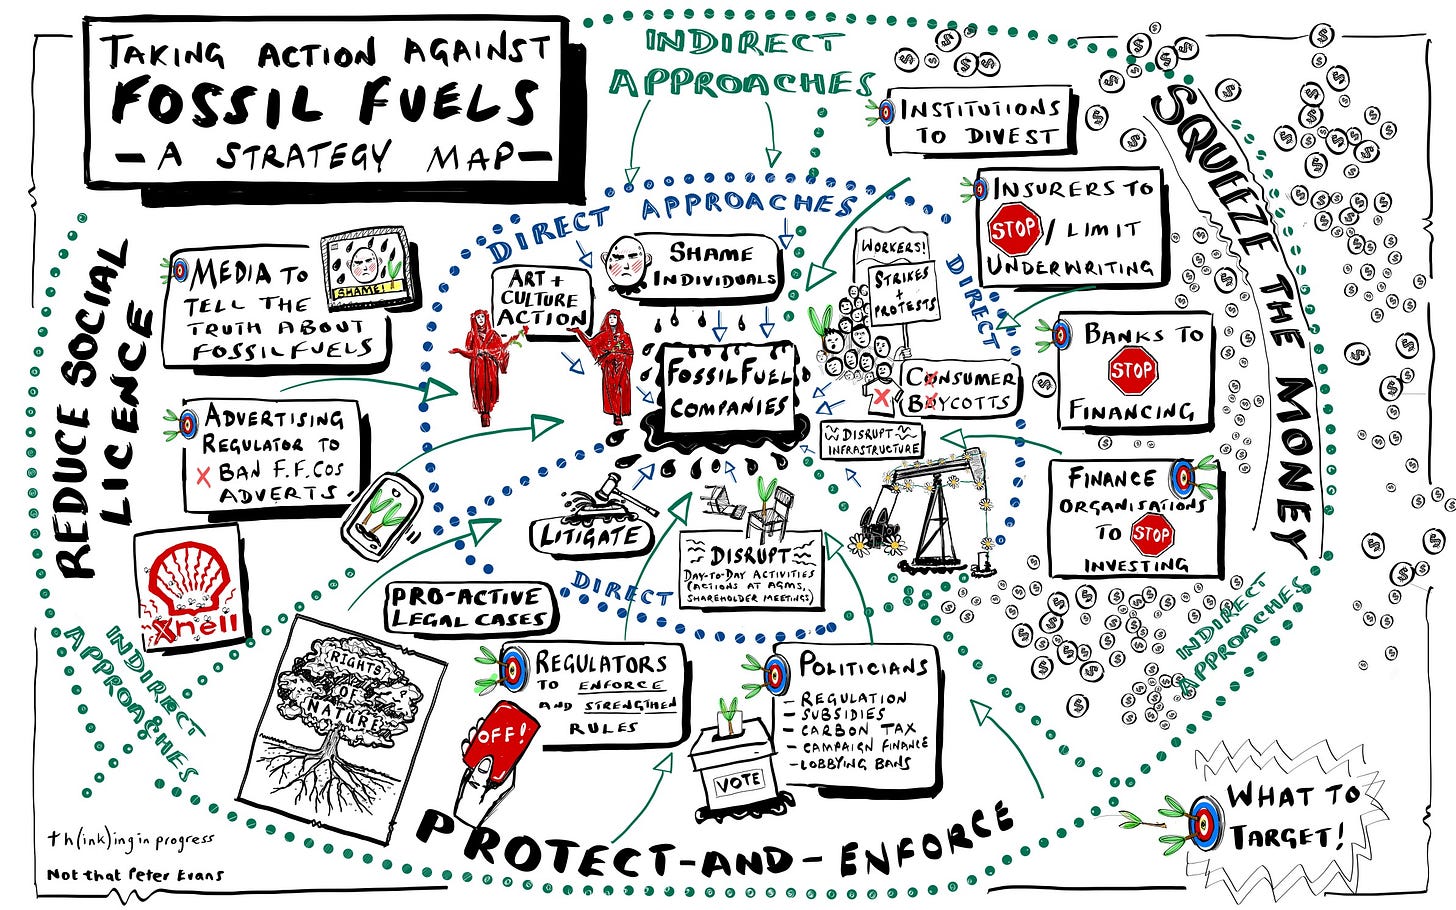 TAKING ACTION AGAINST
FOSSIL FUELS
- A STRATEGY MAP -
INDIRECT
APPROACHES
DIRECT APPROACHES
DIRECT
DIRECT
REDUCE SOCIAL
LICENCE
MEDIA TO
TELL THE
TRUTH ABOUT
FOSSIL FUELS
SHAME!
ADVERTISING
REGULATOR TO
X BAN F.F. COS
ADVERTS.
Xhell
INDIRECT
APPROACHES
ART +
CULTURE
ACTION
SHAME
INDIVIDUALS
FOSSIL FUEL
COMPANIES
WORKERS!
STRIKES
+
PROTESTS
CONSUMER
BOYCOTTS
DISRUPT
INFRASTRUCTURE
LITIGATE
DISRUPT
DAY-TO-DAY ACTIVITIES
(ACTIONS AT AGMS,
SHAREHOLDER MEETINGS)
INSTITUTIONS
TO DIVEST
INSURERS TO
STOP / LIMIT
UNDERWRITING
BANKS TO
STOP
FINANCING
FINANCE
ORGANISATIONS
TO STOP
INVESTING
SQUEEZE THE MONEY
INDIRECT
APPROACHES
PRO-ACTIVE
LEGAL CASES
RIGHTS
OF
NATURE
REGULATORS
TO ENFORCE
AND STRENGTHEN
RULES
OFF!
POLITICIANS
- REGULATION
- SUBSIDIES
- CARBON TAX
- CAMPAIGN FINANCE
- LOBBYING BANS
VOTE
PROTECT-AND-ENFORCE
WHAT TO
TARGET!
th(ink)ing in progress
Not that Peter Evans